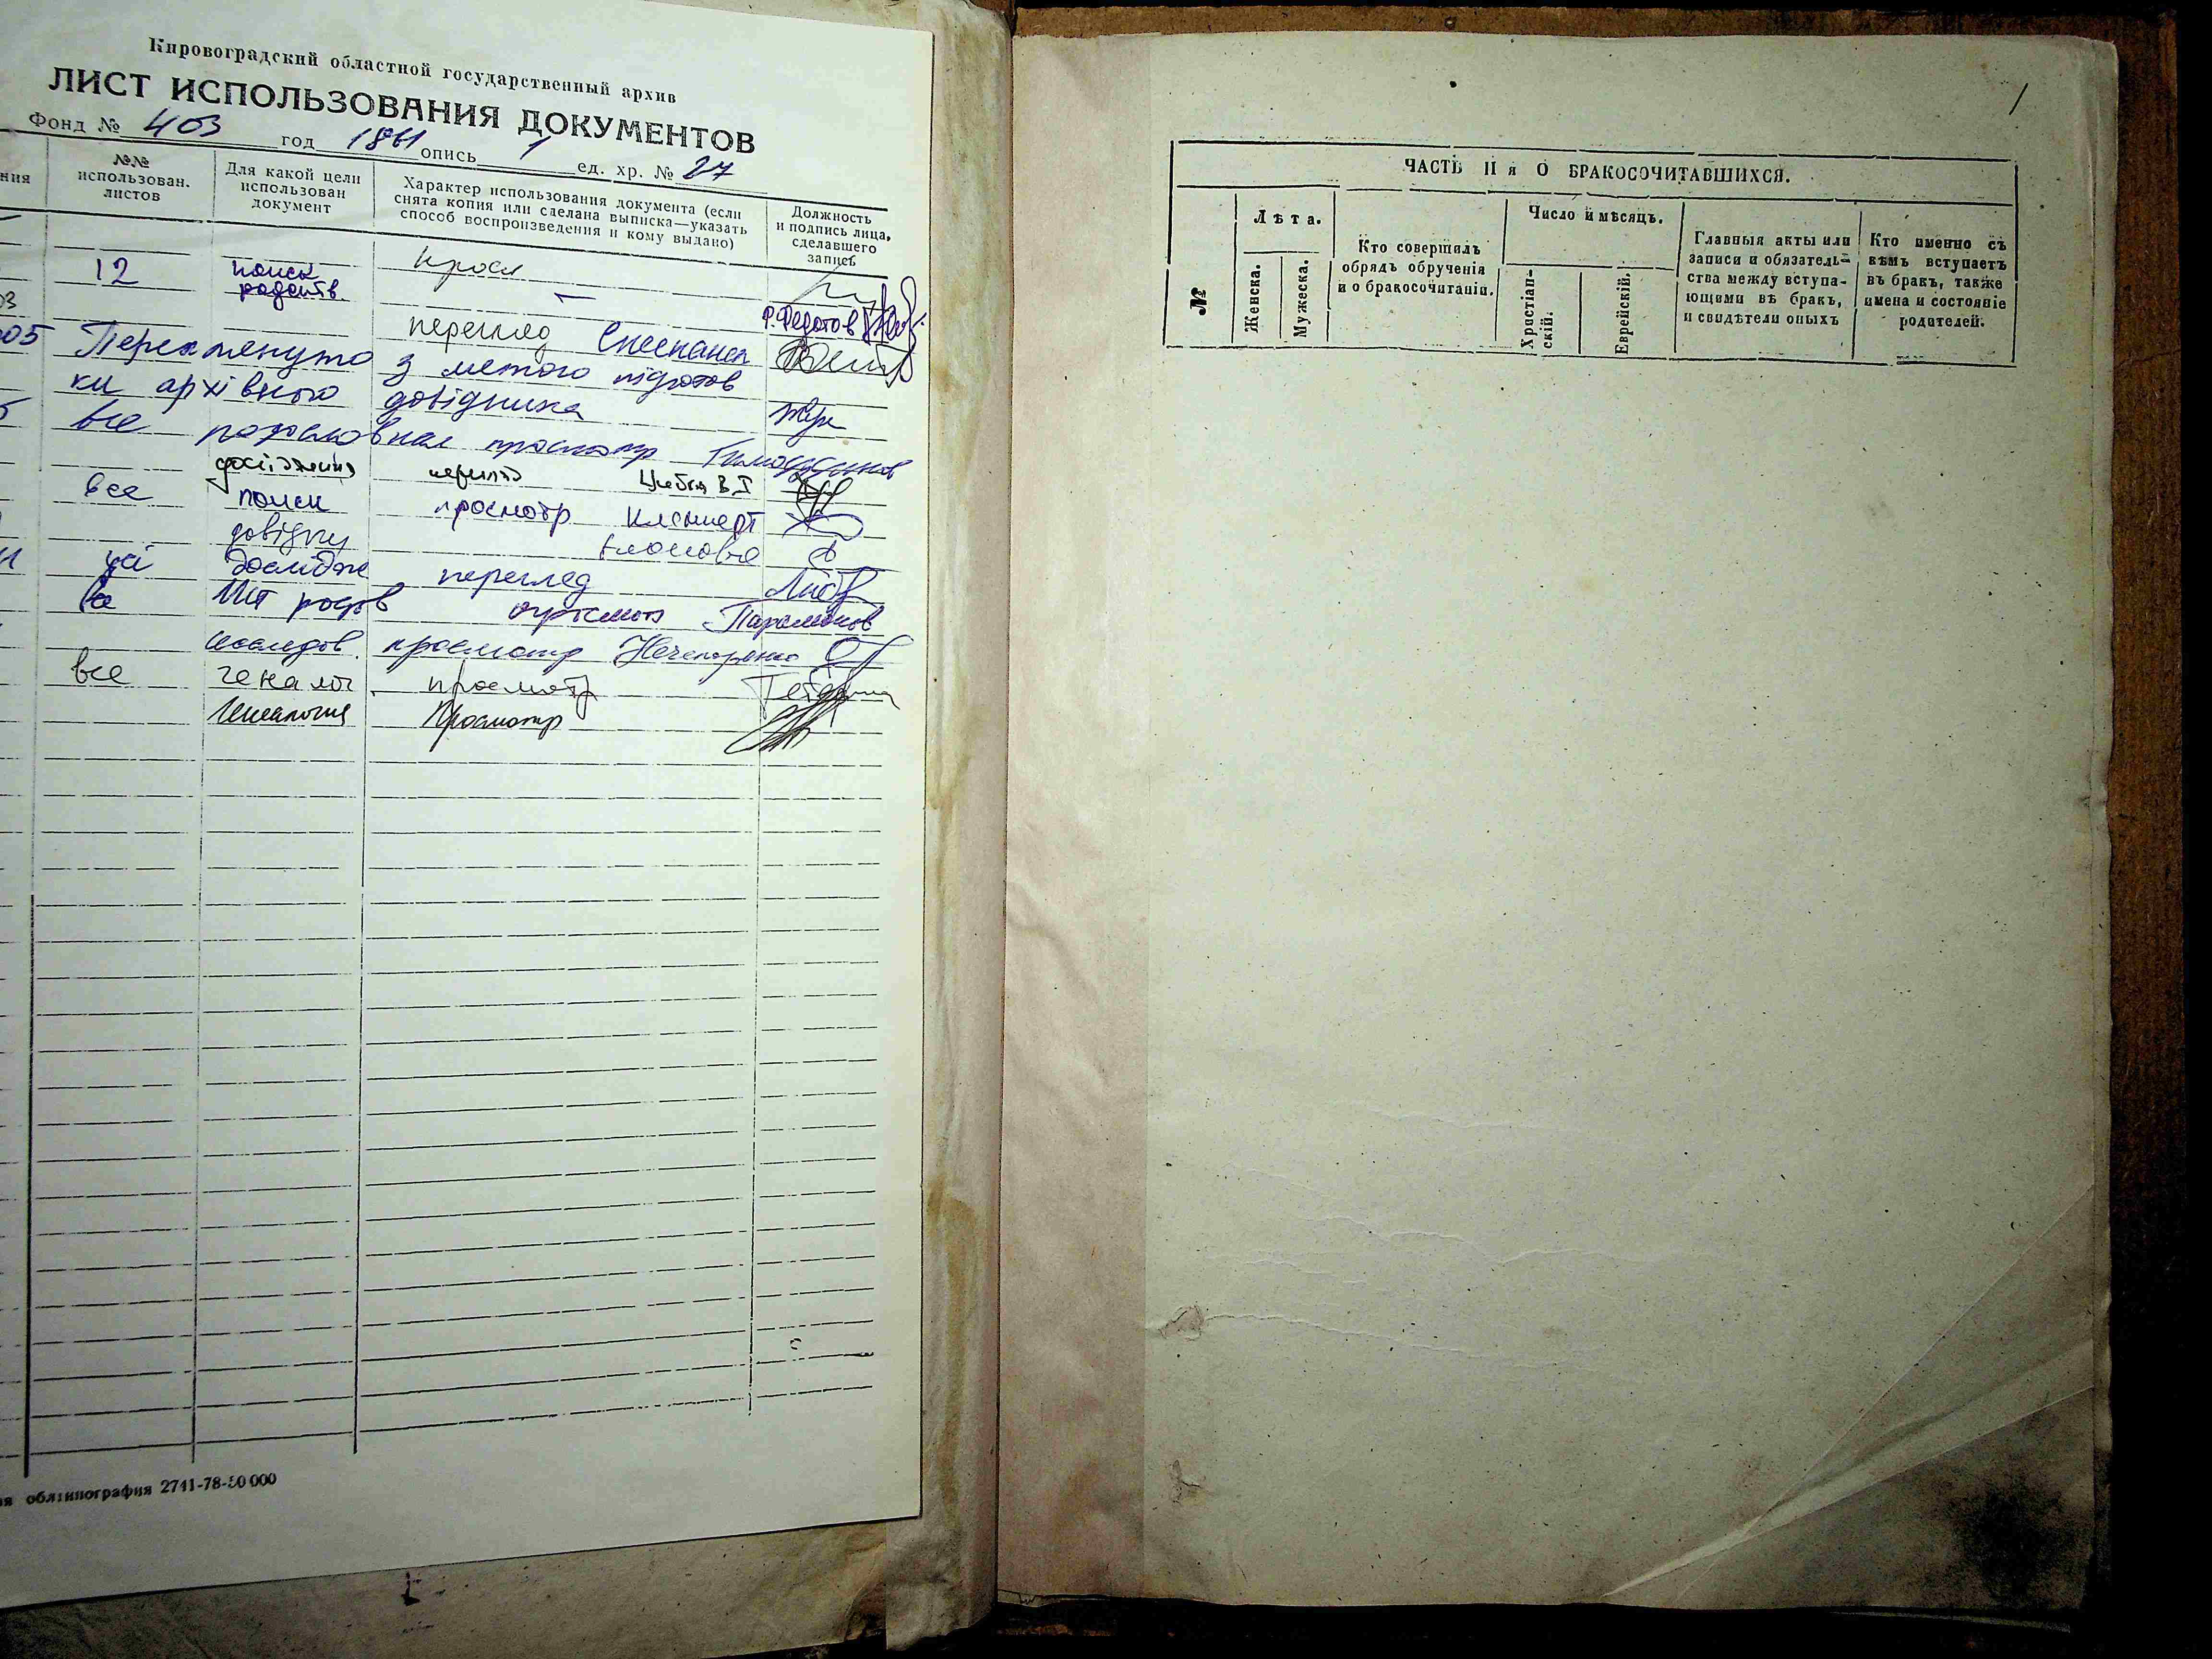 Кировоградский областной государственный архив
ЛИСТ ИСПОЛЬЗОВАНИЯ ДОКУМЕНТОВ
Фонд № 403 год 1861 опись 1 ед. хр. № 27
ния
№№
использован.
листов
Для какой цели
использован
документ
Характер использования документа (если
снята копия или сделана выписка—указать
способ воспроизведения и кому выдано)
Должность
и подпись лица,
сделавшего
запись
12 поиск
родств.
03 Р. Федотов
перегляд
05 Переглянуто з метою підготов
ки архівного довідника
5 все родословная просмотр
дослідження перегляд В.І
все поиск просмотр
довідки
усі перегляд
Парамонов
исследов. просмотр Нечепоренко
все генеалог. просмотр
Генеалогия Просмотр
облтипография 2741-78-50 000
1
ЧАСТЬ II я О БРАКОСОЧИТАВШИХСЯ.
№
Лѣта.
Женска.
Мужеска.
Кто совершилъ
обрядъ обрученія
и о бракосочитаніи.
Число и мѣсяцъ.
Христіан-
скій.
Еврейскій.
Главныя акты или
записи и обязатель-
ства между вступа-
ющими въ бракъ,
и свидѣтели оныхъ
Кто именно съ
кѣмъ вступаетъ
въ бракъ, также
имена и состояніе
родителей.